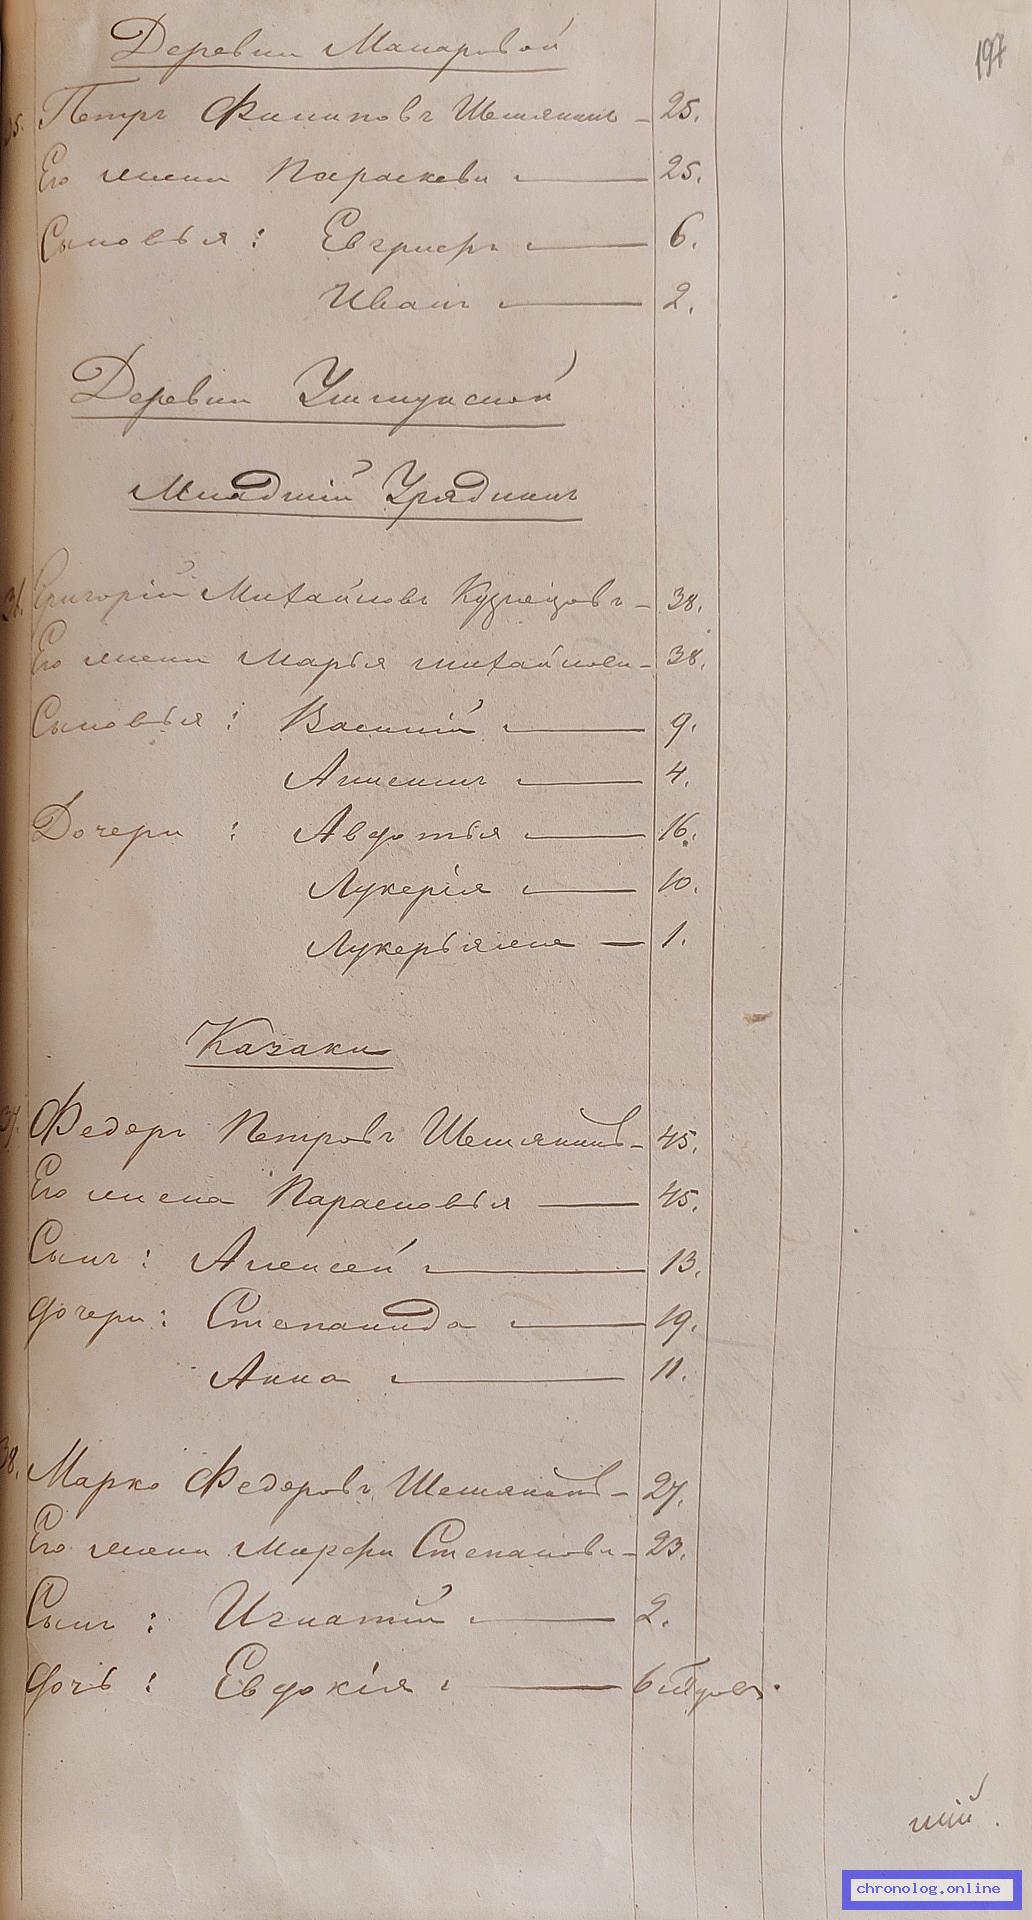 197
Деревни Макаровой
35. Петръ Филиповъ Шемякинъ — 25.
Его жена Параскева — 25.
Сыновья: Евграфъ — 6.
Иванъ — 2.
Деревни
Младшій Урядникъ
36. Григорій Михайловъ Кузнецовъ — 38.
Его жена Марья Михайлова — 38.
Сыновья: Василій — 9.
4.
Дочери: Авдотья — 16.
Лукерія — 10.
1.
Казаки
37. Федоръ Петровъ Шемякинъ — 45.
Его жена Парасковья — 45.
Сынъ: Алексей — 13.
Дочери: Степанида — 19.
Анна — 11.
38. Марко Федоровъ Шемякинъ — 27.
Его жена Марфа Степанова — 23.
Сынъ: Игнатій — 2.
Дочь: Евдокія — 6
шій.
chronolog.online